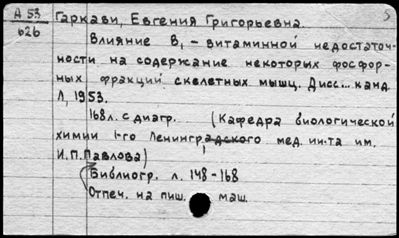 А 53
626
5
Гаркави, Евгения Григорьевна.
Влияние В₁ - витаминной недостаточ-
ности на содержание некоторых фосфор-
ных фракций скелетных мышц. Дисс... канд.
Л, 1953.
168 л. с диагр. (Кафедра биологической
химии 1-го Ленинградского мед. ин-та им.
И.П. Павлова)
Библиогр. л. 148-168
Отпеч. на пиш. маш.